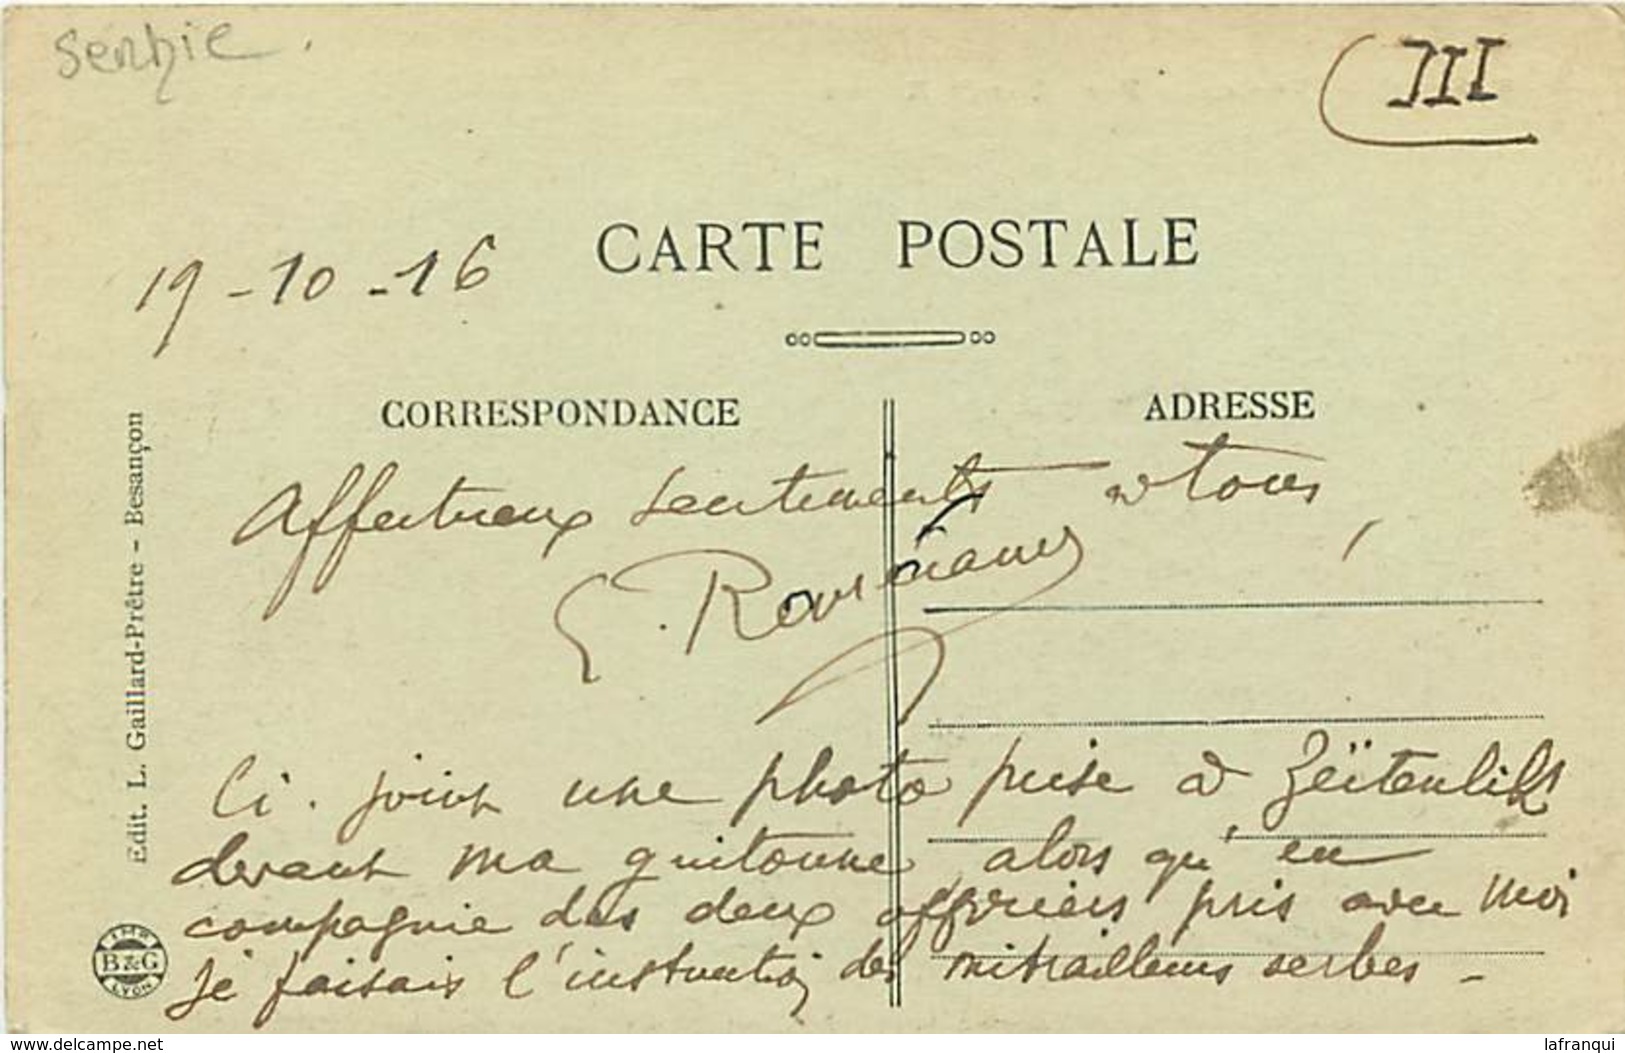 Serbie
III
CARTE POSTALE
19-10-16
CORRESPONDANCE
ADRESSE
Affectueux sentiments à tous,
E.
Ci. joint une photo prise à Zeïtenlik
devant ma guitoune alors qu'en
compagnie des deux officiers pris avec moi
je faisais l'instruction des mitrailleurs serbes -
Edit. L. Gaillard-Prêtre - Besançon
IMP.
B&G
LYON
www.delcampe.net
lafranqui